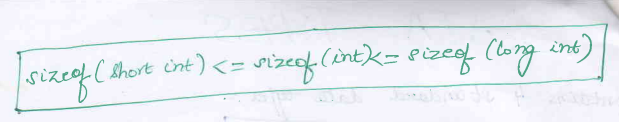 sizeof (short int) <= sizeof (int) <= sizeof (long int)